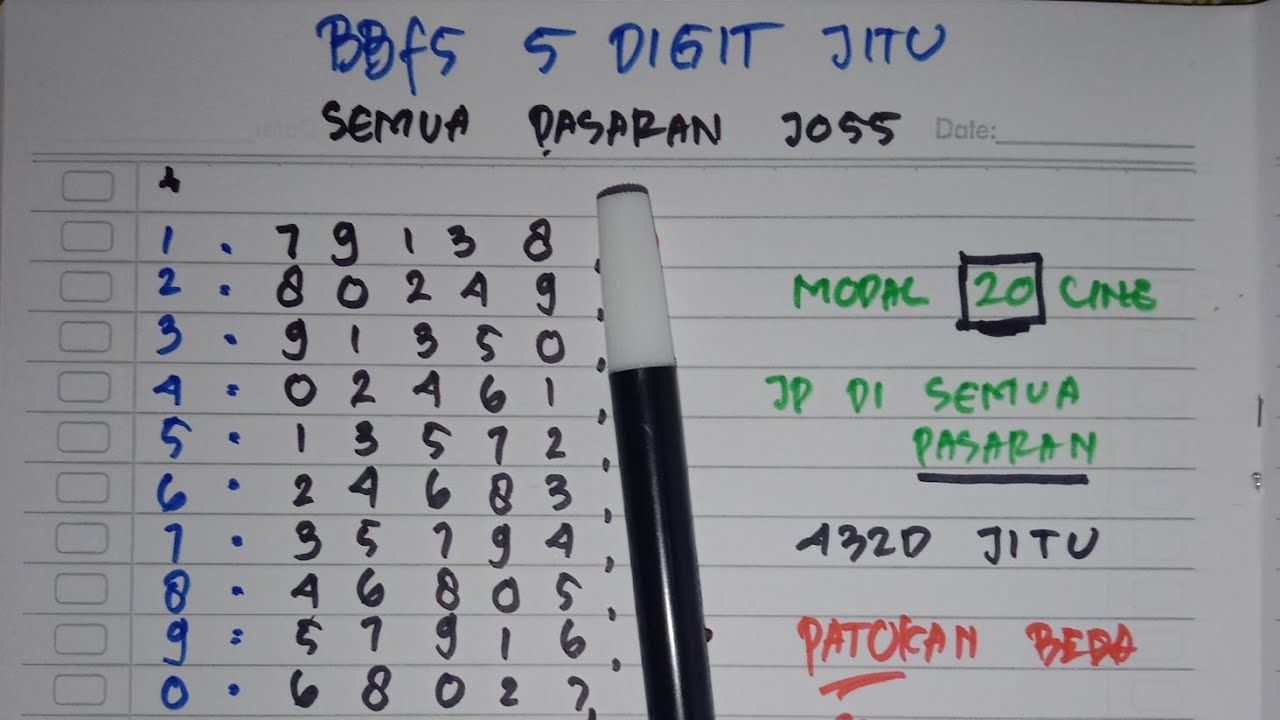 BBfS 5 DIGIT JITU
SEMUA PASARAN JOSS
Date:
1 . 7 9 1 3 8
2 : 8 0 2 4 9
MODAL 20 CINE
3 . 9 1 3 5 0
4 : 0 2 4 6 1
JP DI SEMUA
PASARAN
5 . 1 3 5 7 2
6 . 2 4 6 8 3
7 . 3 5 7 9 4
432D JITU
8 . 4 6 8 0 5
9 : 5 7 9 1 6
PATOKAN BEDA
0 . 6 8 0 2 7